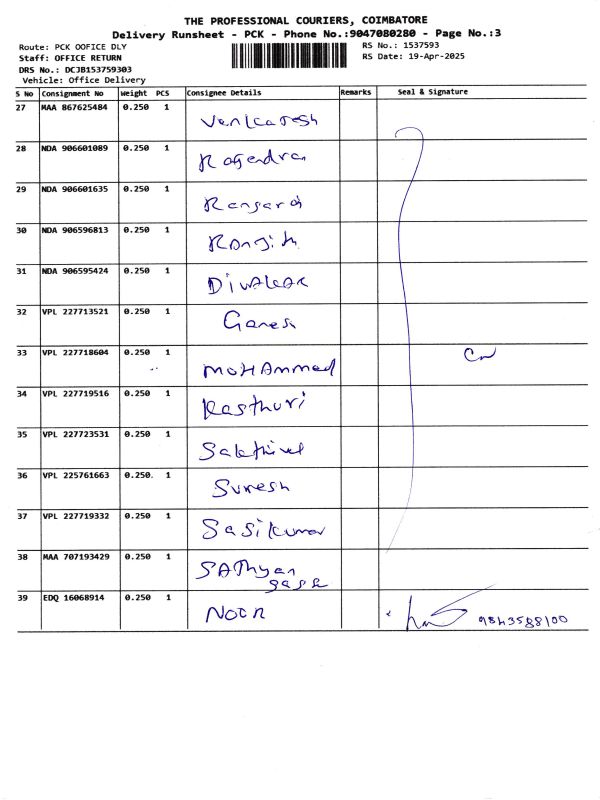 THE PROFESSIONAL COURIERS, COIMBATORE
Delivery Runsheet - PCK - Phone No.:9047080280 - Page No.:3
Route: PCK OOFICE DLY
RS No.: 1537593
Staff: OFFICE RETURN
RS Date: 19-Apr-2025
DRS No.: DCJB153759303
Vehicle: Office Delivery
S No Consignment No Weight PCS Consignee Details Remarks Seal & Signature
27 MAA 867625484 0.250 1 Venkatesh
28 NDA 906601089 0.250 1 Rajendran
29 NDA 906601635 0.250 1 Rangaraj
30 NDA 906596813 0.250 1 Ranjith
31 NDA 906595424 0.250 1 Diwakar
32 VPL 227713521 0.250 1 Ganesh
33 VPL 227718604 0.250 1 MOHAmmed
34 VPL 227719516 0.250 1 Kasthuri
35 VPL 227723531 0.250 1 Sakthivel
36 VPL 225761663 0.250 1 Suresh
37 VPL 227719332 0.250 1 Sasikumar
38 MAA 707193429 0.250 1 SAThyan
39 EDQ 16068914 0.250 1 NOOR 9843588100